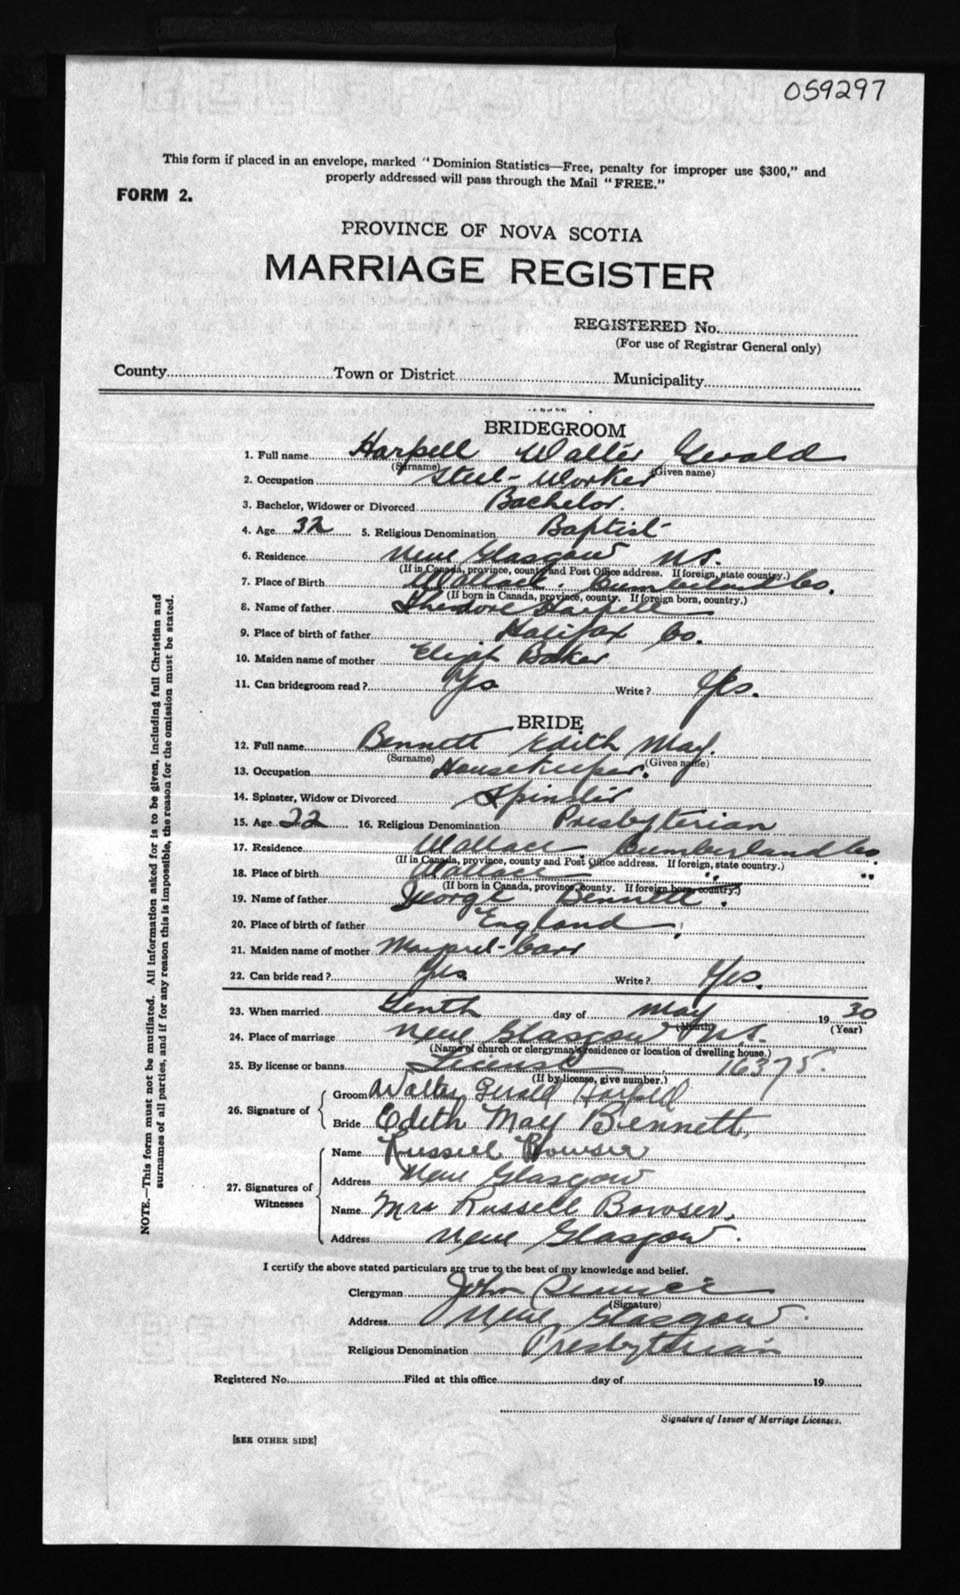 059297
This form if placed in an envelope, marked "Dominion Statistics—Free, penalty for improper use $300," and
properly addressed will pass through the Mail "FREE."
FORM 2.
PROVINCE OF NOVA SCOTIA
MARRIAGE REGISTER
REGISTERED No.
(For use of Registrar General only)
County Town or District Municipality
BRIDEGROOM
1. Full name Harpell Walter Gerald
(Surname) (Given name)
2. Occupation Steel-Worker
3. Bachelor, Widower or Divorced Bachelor.
4. Age 32 5. Religious Denomination Baptist
6. Residence New Glasgow N.S.
(If in Canada, province, county and Post Office address. If foreign, state country.)
7. Place of Birth Wallace, Cumberland Co.
(If born in Canada, province, county. If foreign born, country.)
8. Name of father Thedore Harpell
9. Place of birth of father Halifax Co.
10. Maiden name of mother Elizh Baker
11. Can bridegroom read? Yes Write? Yes.
BRIDE
12. Full name Bennett Edith May.
(Surname) (Given name)
13. Occupation Housekeeper.
14. Spinster, Widow or Divorced Spinster
15. Age 22 16. Religious Denomination Presbyterian
17. Residence Wallace Cumberland Co.
(If in Canada, province, county and Post Office address. If foreign, state country.)
18. Place of birth Wallace " "
(If born in Canada, province, county. If foreign born, country.)
19. Name of father George Bennett.
20. Place of birth of father England
21. Maiden name of mother Margaret Carr
22. Can bride read? Yes Write? Yes.
23. When married Tenth day of May 1930
(Month) (Year)
24. Place of marriage New Glasgow N.S.
(Name of church or clergyman's residence or location of dwelling house.)
25. By license or banns License 16375.
(If by license, give number.)
26. Signature of Groom Walter Gerald Harpell
Bride Edith May Bennett,
27. Signatures of Witnesses
Name Russell Bowser
Address New Glasgow
Name Mrs Russell Bowser,
Address New Glasgow.
I certify the above stated particulars are true to the best of my knowledge and belief.
Clergyman John
(Signature)
Address New Glasgow
Religious Denomination Presbyterian
Registered No. Filed at this office day of 19
Signature of Issuer of Marriage Licenses.
[SEE OTHER SIDE]
NOTE.—This form must not be mutilated. All information asked for is to be given, including full Christian and
surnames of all parties, and if for any reason this is impossible, the reason for the omission must be stated.